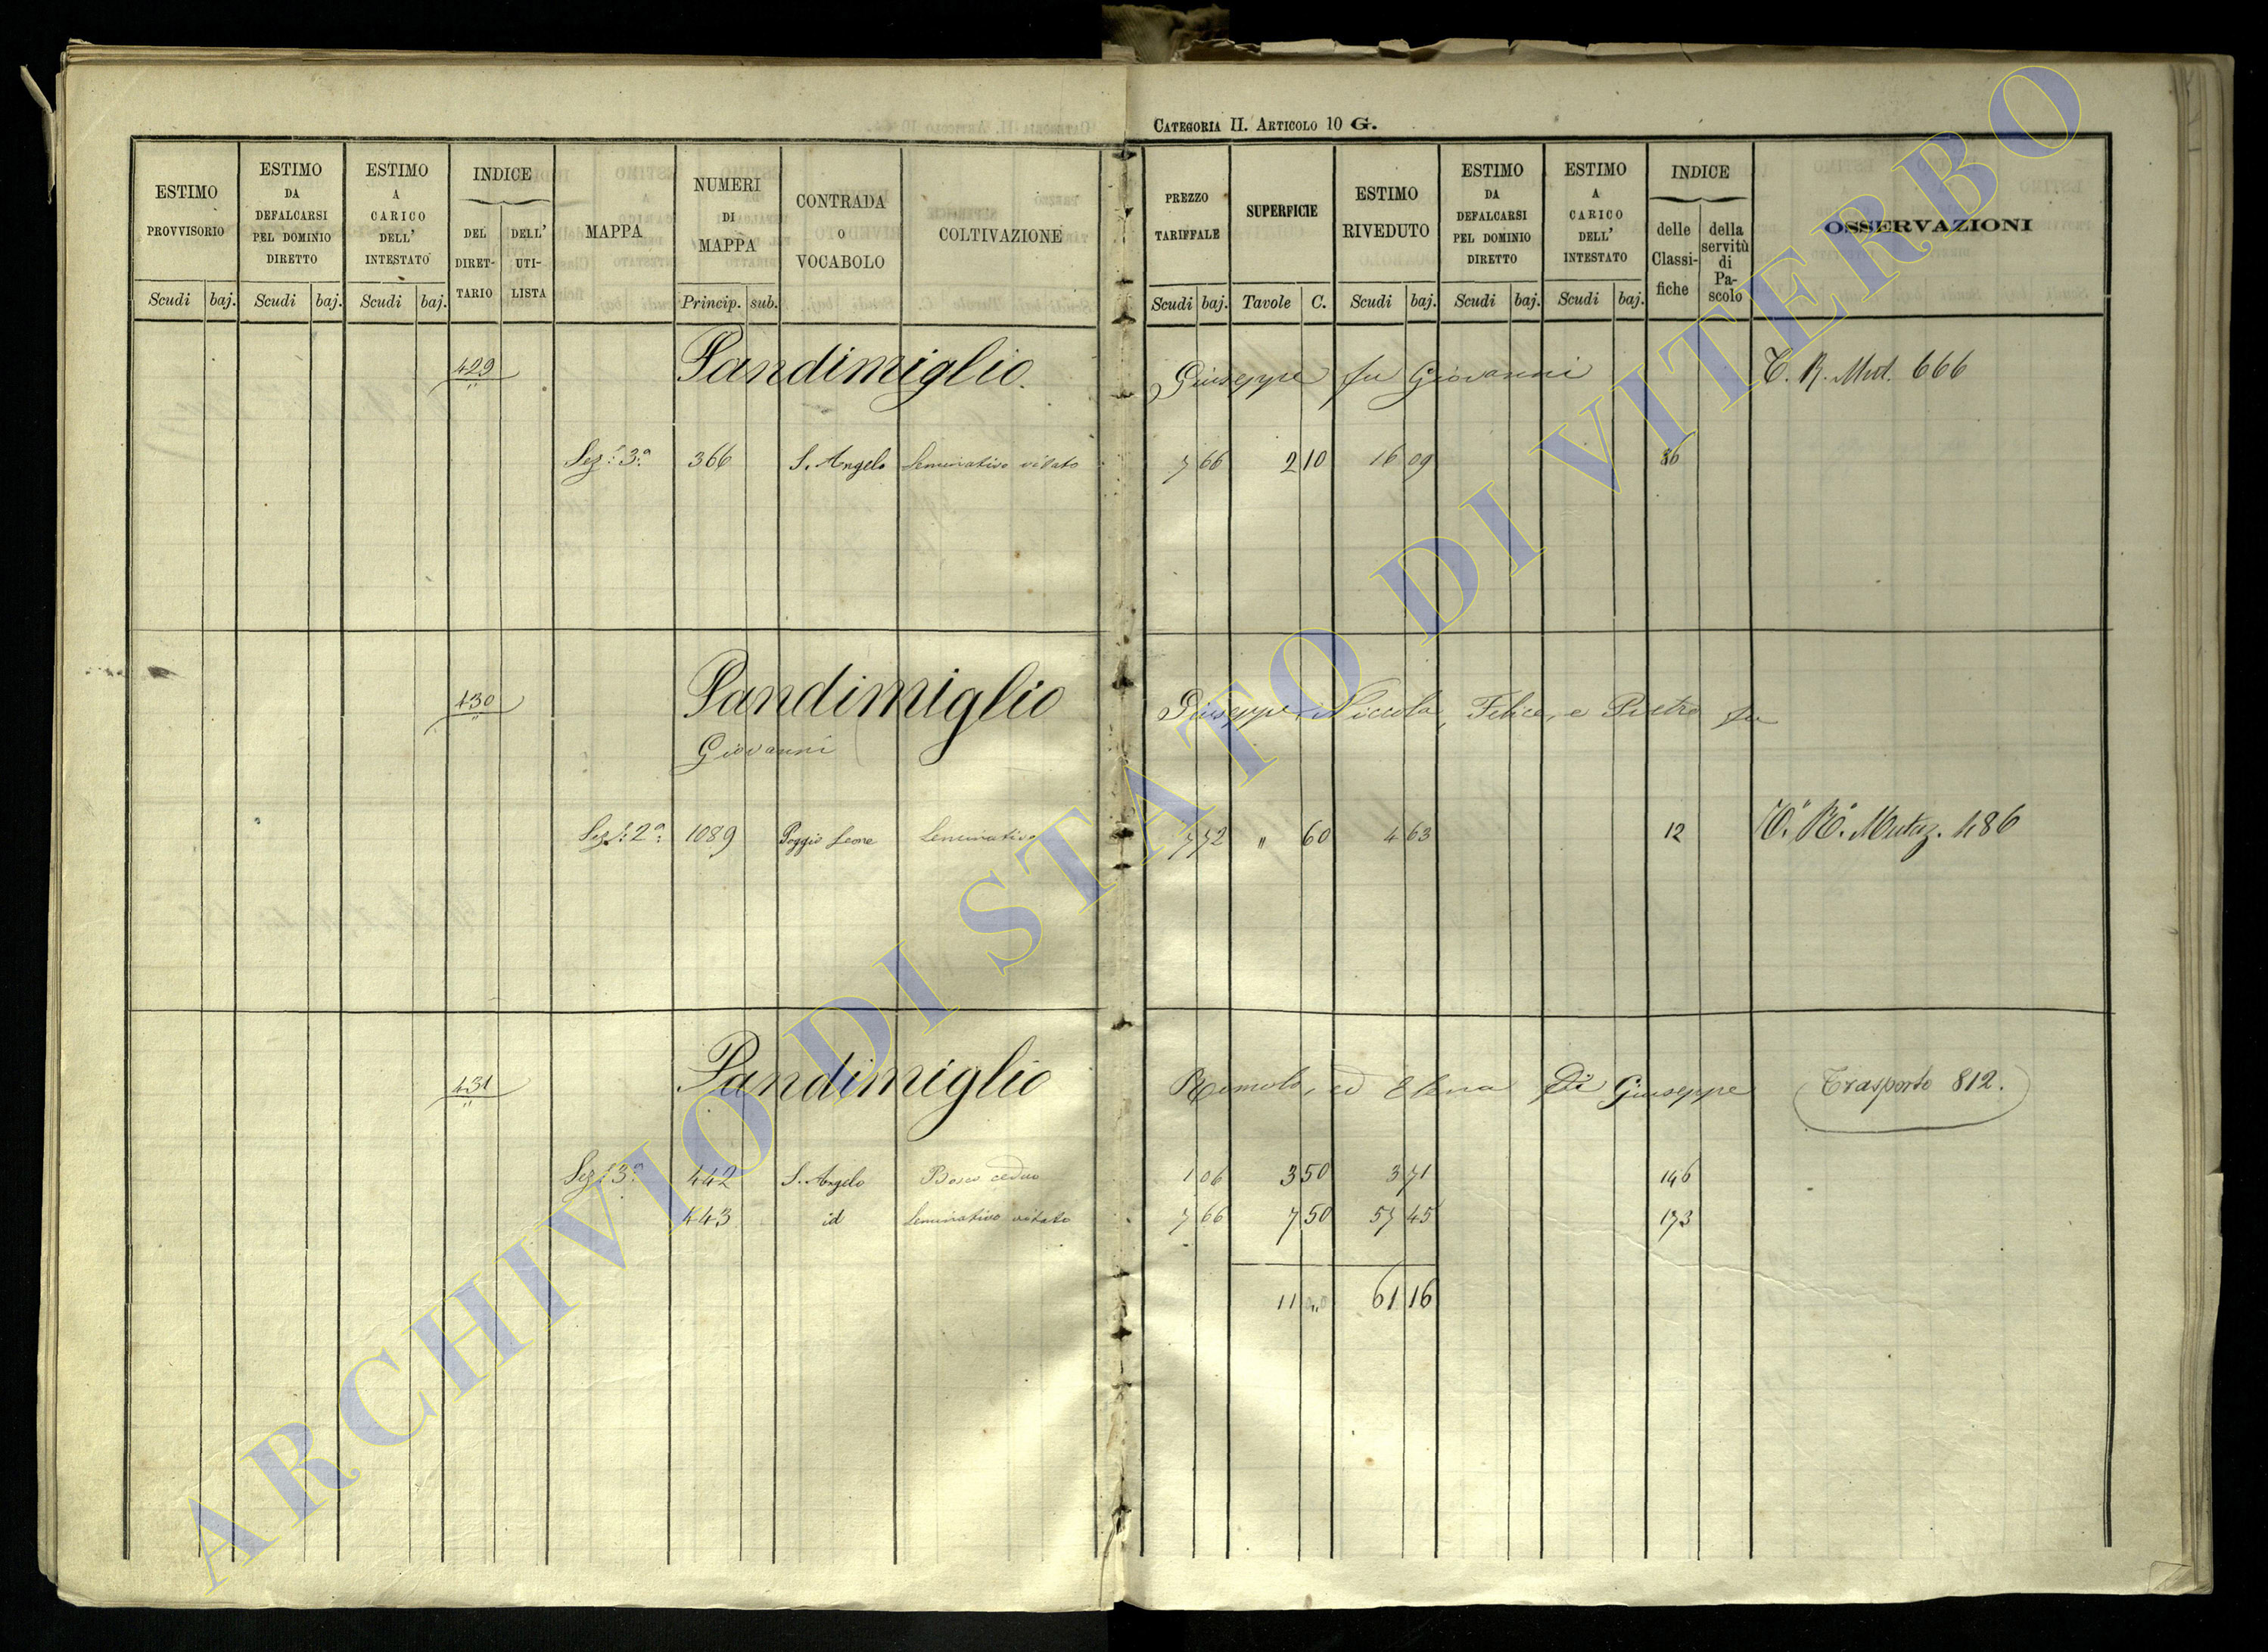 CATEGORIA II. ARTICOLO 10 G.
ESTIMO PROVVISORIO Scudi baj.
ESTIMO DA DEFALCARSI PEL DOMINIO DIRETTO Scudi baj.
ESTIMO A CARICO DELL' INTESTATO Scudi baj.
INDICE DEL DIRETTARIO DELL' UTILISTA
MAPPA
NUMERI DI MAPPA Princip. sub.
CONTRADA O VOCABOLO
COLTIVAZIONE
PREZZO TARIFFALE Scudi baj.
SUPERFICIE Tavole C.
ESTIMO RIVEDUTO Scudi baj.
ESTIMO DA DEFALCARSI PEL DOMINIO DIRETTO Scudi baj.
ESTIMO A CARICO DELL' INTESTATO Scudi baj.
INDICE delle Classifiche della servitù di Pascolo
OSSERVAZIONI
429 Pandimiglio Giuseppe fu Giovanni T. R. Mut. 666
Sez: 3a 366 S. Angelo Seminativo vitato 7 66 2 10 16 09 86
430 Pandimiglio Giuseppe, Niccola, Felice, e Pietro fu
Giovanni
Sez: 2a 1089 Poggio Leone Seminativo 7 72 " 60 4 63 12 Mutaz. 486
431 Pandimiglio Romolo, ed Elena Di Giuseppe Trasporto 812.
Sez: 3a 442 S. Angelo Bosco ceduo 1 06 3 50 3 71 146
443 id Seminativo vitato 7 66 7 50 57 45 173
11 " 61 16
ARCHIVIO DI STATO DI VITERBO